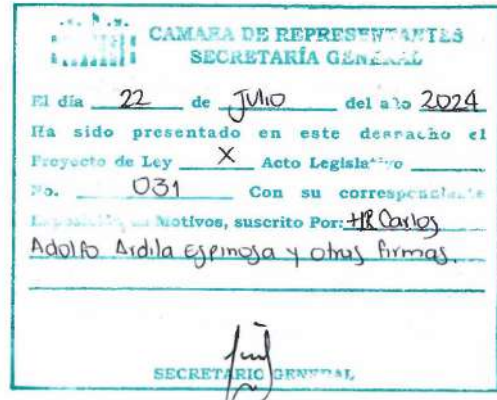 CAMARA DE REPRESENTANTES
SECRETARÍA GENERAL
El día 22 de Julio del año 2024
Ha sido presentado en este despacho el
Proyecto de Ley X Acto Legislativo
No. 031 Con su correspondiente
Exposición de Motivos, suscrito Por: HR Carlos
Adolfo Ardila Espinosa y otras firmas.
SECRETARIO GENERAL